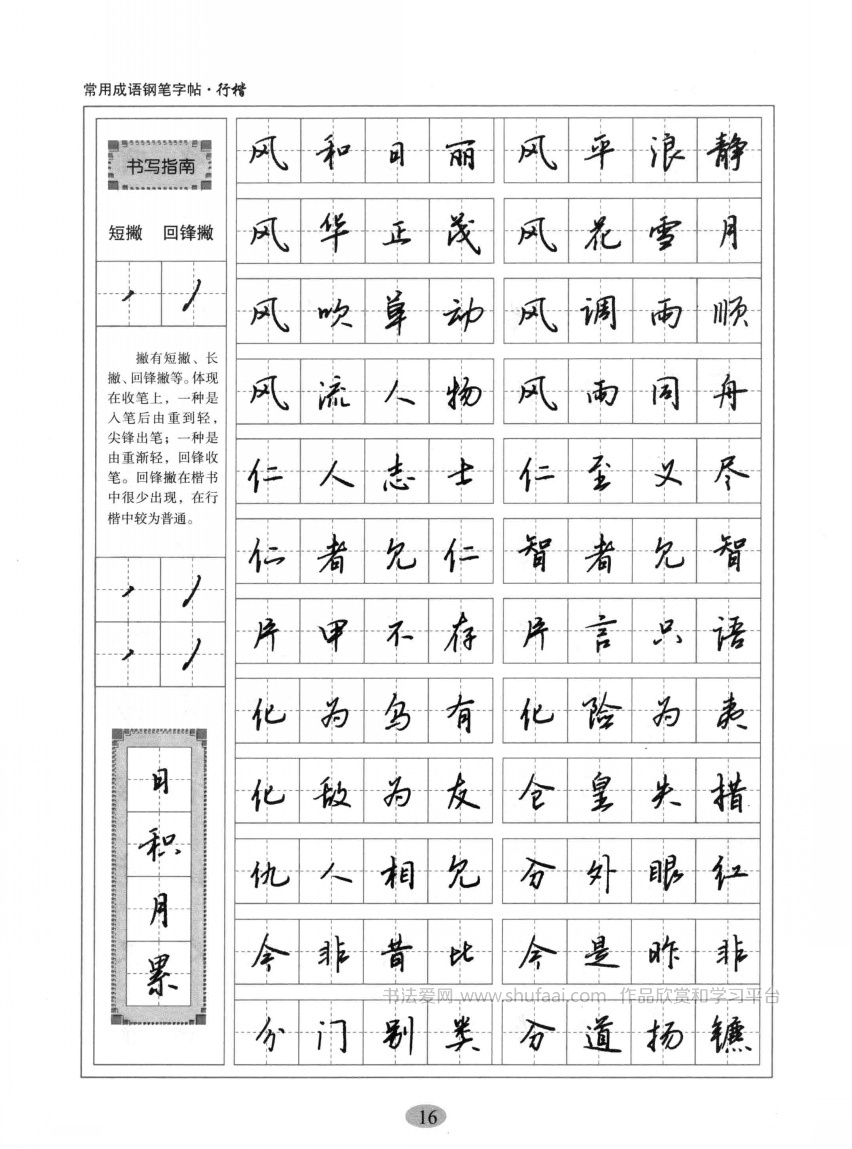 常用成语钢笔字帖·行楷
书写指南
短撇 回锋撇
撇有短撇、长
撇、回锋撇等。体现
在收笔上，一种是
入笔后由重到轻，
尖锋出笔；一种是
由重渐轻，回锋收
笔。回锋撇在楷书
中很少出现，在行
楷中较为普通。
日积月累
风和日丽 风平浪静
风华正茂 风花雪月
风吹草动 风调雨顺
风流人物 风雨同舟
仁人志士 仁至义尽
仁者见仁 智者见智
片甲不存 片言只语
化为乌有 化险为夷
化敌为友 仓皇失措
仇人相见 分外眼红
今非昔比 今是昨非
分门别类 分道扬镳
书法爱网 www.shufaai.com 作品欣赏和学习平台
16